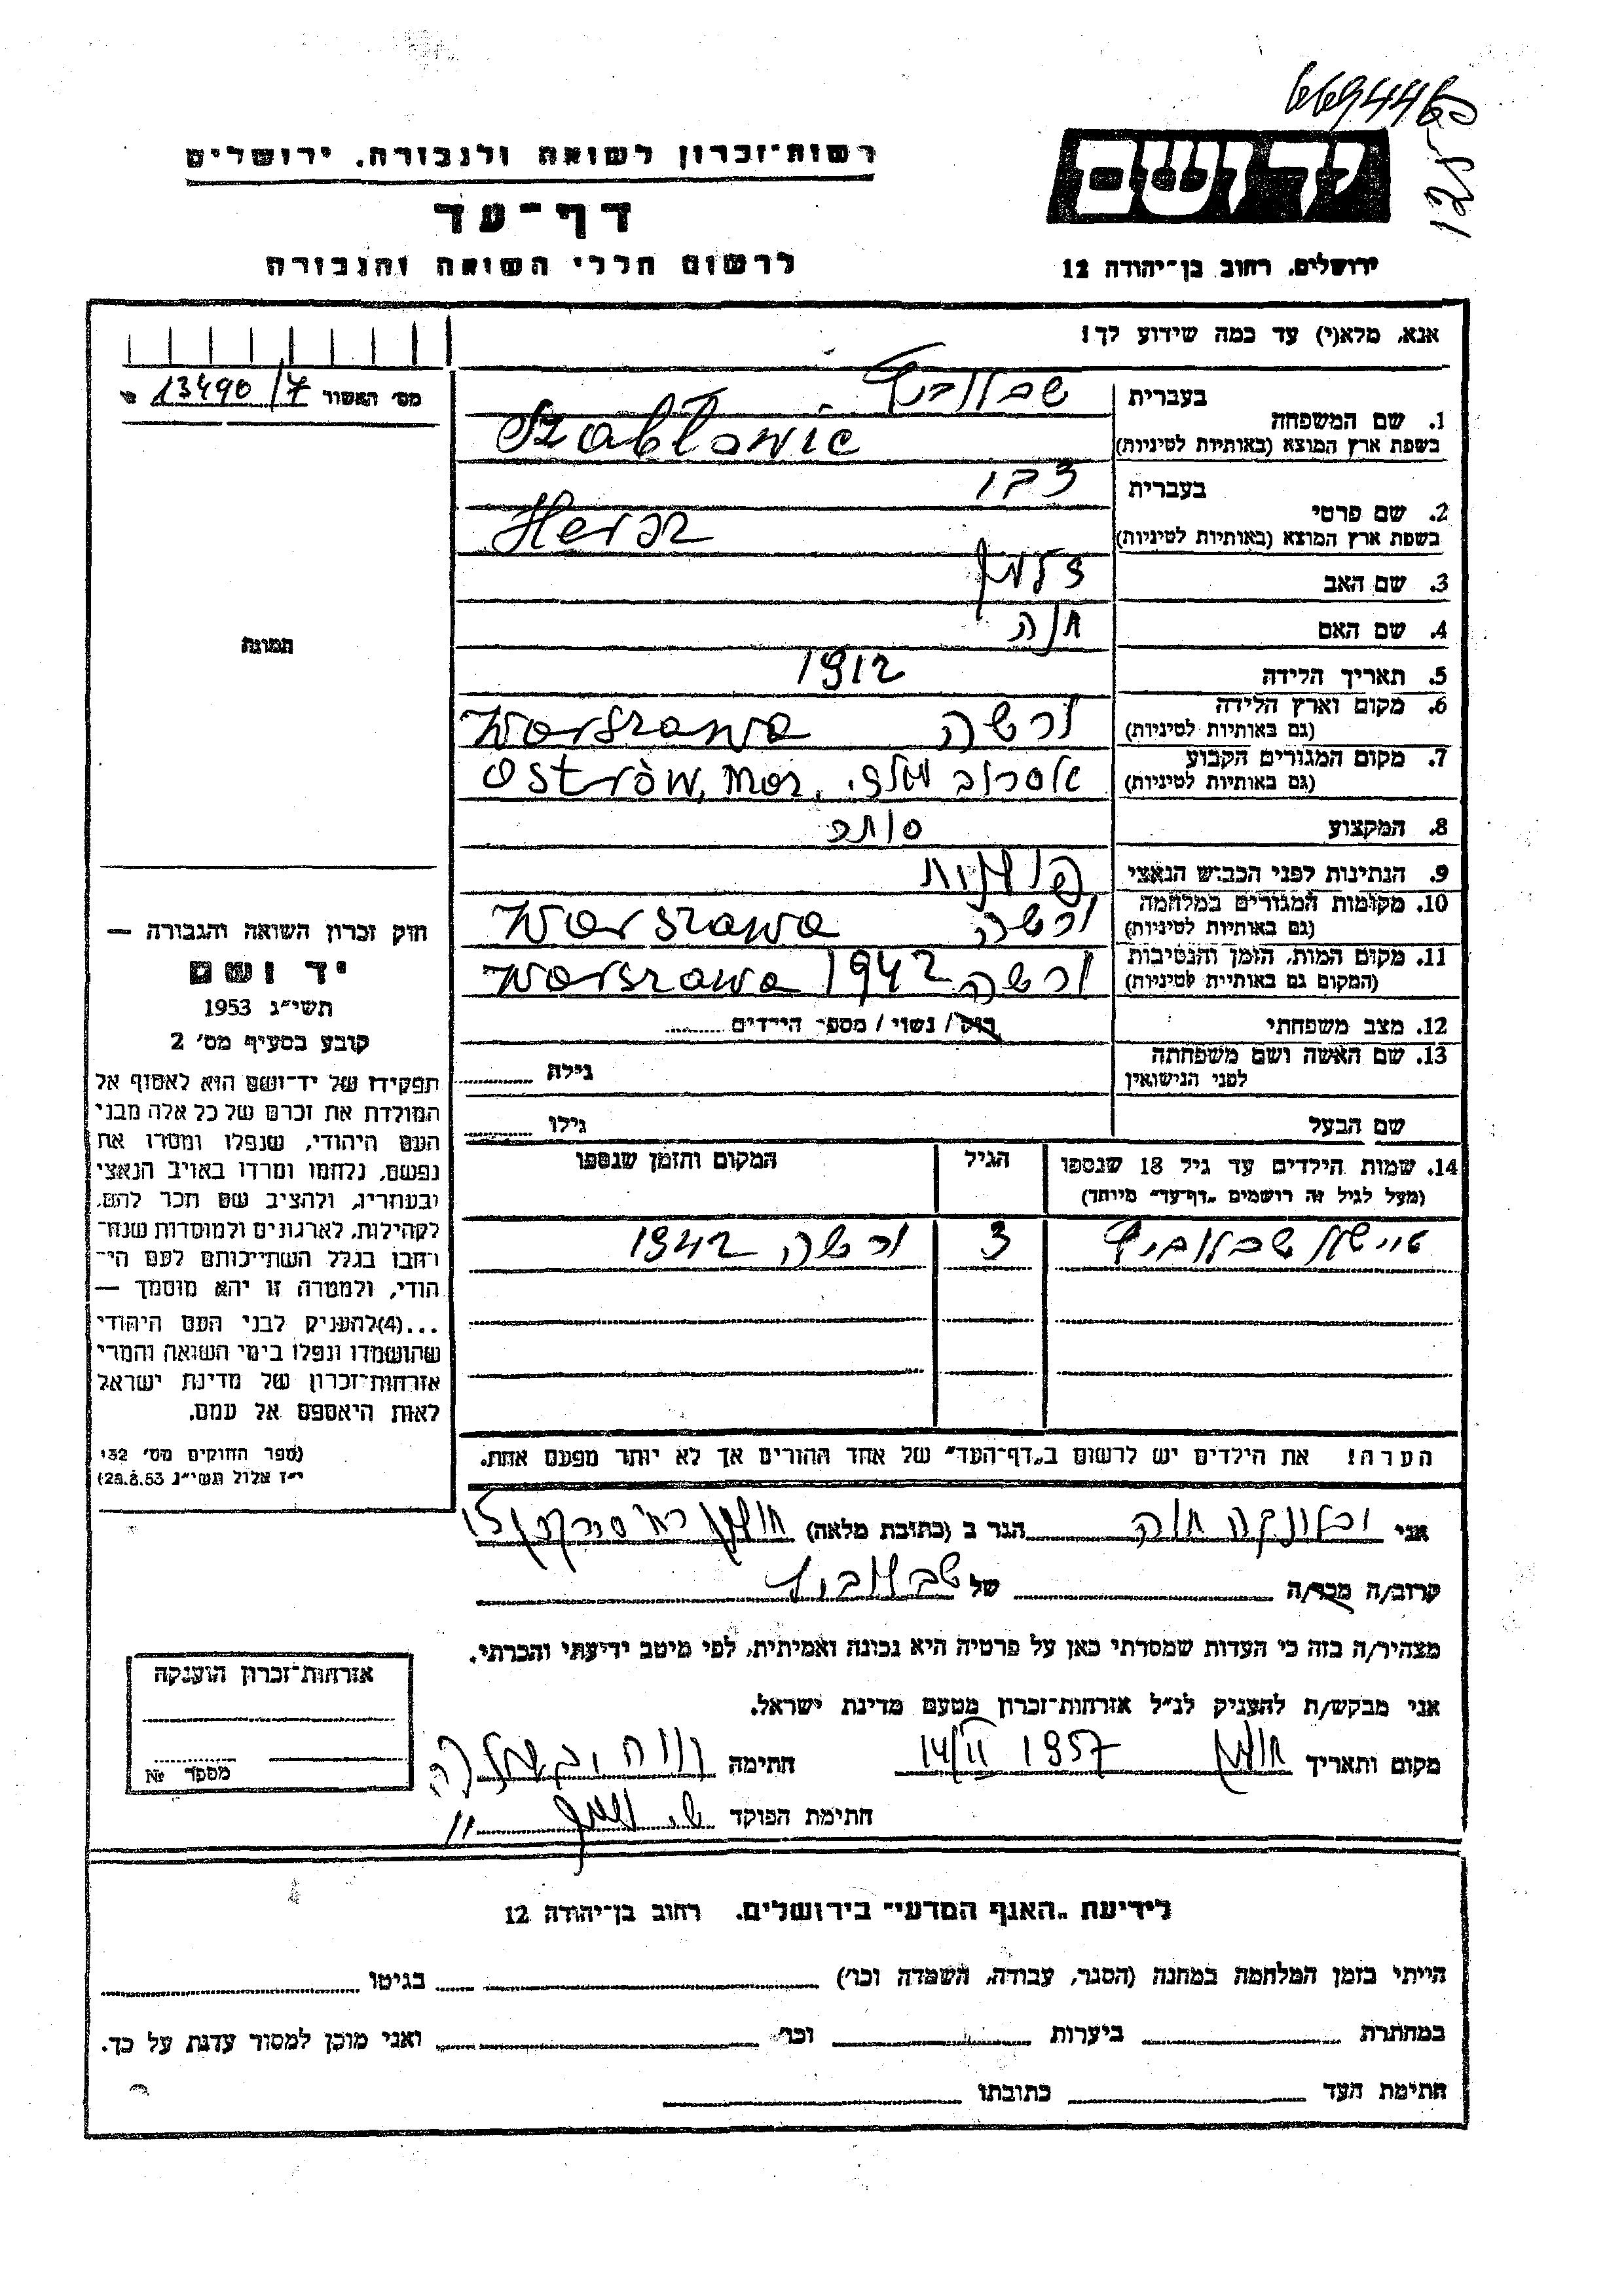 669446
125
יד ושם
רשות־זכרון לשואה ולגבורה, ירושלים
דף־עד
לרשום חללי השואה והגבורה
ירושלים, רחוב בן־יהודה 12
אנא, מלא(י) עד כמה שידוע לך!
מס׳ האשור 13490/7
1. שם המשפחה
בעברית שבלוביץ
בשפת ארץ המוצא (באותיות לטיניות) Szabłowic
2. שם פרטי
בעברית צבי
בשפת ארץ המוצא (באותיות לטיניות) Hersz
3. שם האב זלמן
4. שם האם חנה
5. תאריך הלידה 1912
6. מקום וארץ הלידה (גם באותיות לטיניות) ורשה Warszawa
7. מקום המגורים הקבוע (גם באותיות לטיניות) אסטרוב מאז׳. Ostrów, Maz.
8. המקצוע סוחר
9. הנתינות לפני הכבוש הנאצי פולנית
10. מקומות המגורים במלחמה (גם באותיות לטיניות) ורשה Warszawa
11. מקום המות, הזמן והנסיבות (המקום גם באותיות לטיניות) ורשה 1942 Warszawa
12. מצב משפחתי רווק / נשוי / מספר הילדים
13. שם האשה ושם משפחתה לפני הנישואין גילה
שם הבעל גילו
14. שמות הילדים עד גיל 18 שנספו הגיל המקום והזמן שנספו
(מעל לגיל זה רושמים „דף־עד” מיוחד)
שבלוביץ 3 ורשה 1942
הערה! את הילדים יש לרשום ב„דף־העד” של אחד ההורים אך לא יותר מפעם אחת.
תמונה
חוק זכרון השואה והגבורה —
יד ושם
תשי״ג 1953
קובע בסעיף מס׳ 2
תפקידו של יד־ושם הוא לאסוף אל
המולדת את זכרם של כל אלה מבני
העם היהודי, שנפלו ומסרו את
נפשם, נלחמו ומרדו באויב הנאצי
ובעוזריו, ולהציב שם וזכר להם,
לקהילות, לארגונים ולמוסדות שנח־
רבו בגלל השתייכותם לעם הי־
הודי, ולמטרה זו יהא מוסמך —
...(4)להעניק לבני העם היהודי
שהושמדו ונפלו בימי השואה והמרי
אזרחות־זכרון של מדינת ישראל
לאות היאספם אל עמם.
(ספר החוקים מס׳ 132
י״ז אלול תשי״ג 28.8.53)
אני חנה הגר ב (כתובת מלאה) חולון רח׳ סוקולוב
קרוב/ה מכר/ה של שבלוביץ
מצהיר/ה בזה כי העדות שמסרתי כאן על פרטיה היא נכונה ואמיתית, לפי מיטב ידיעתי והכרתי.
אני מבקש/ת להעניק לנ״ל אזרחות־זכרון מטעם מדינת ישראל.
מקום ותאריך חולון 14/II 1957 חתימה חנה
חתימת הפוקד
אזרחות־זכרון הוענקה
מספר №
לידיעת „האגף המדעי” בירושלים, רחוב בן־יהודה 12
הייתי בזמן המלחמה במחנה (הסגר, עבודה, השמדה וכו׳) בגיטו
במחתרת ביערות וכו׳ ואני מוכן למסור עדות על כך.
חתימת העד כתובתו